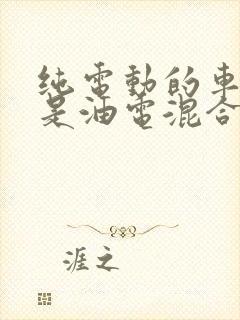 纯電動的車
是油電混合
涯之